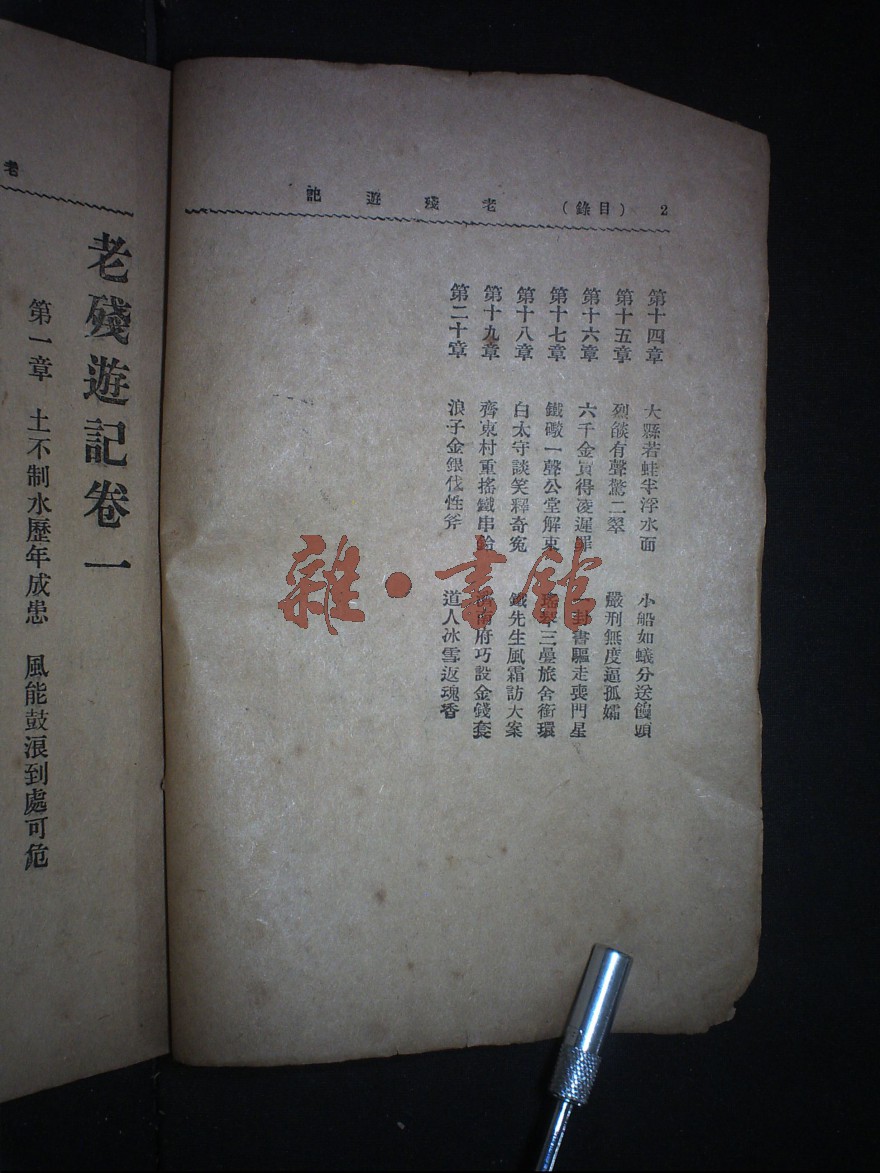 2 （目錄） 老殘遊記
第十四章 大縣若蛙半浮水面 小船如蟻分送饅頭
第十五章 烈燄有聲驚二翠 嚴刑無度逼孤孀
第十六章 六千金買得凌遲罪 一封書驅走喪門星
第十七章 鐵礮一聲公堂解索 瑤琴三疊旅舍銜環
第十八章 白太守談笑釋奇冤 鐵先生風霜訪大案
第十九章 齊東村重搖鐵串鈴 濟南府巧設金錢套
第二十章 浪子金銀伐性斧 道人冰雪返魂香
老
老殘遊記卷一
第一章 土不制水歷年成患 風能鼓浪到處可危
雜·書館